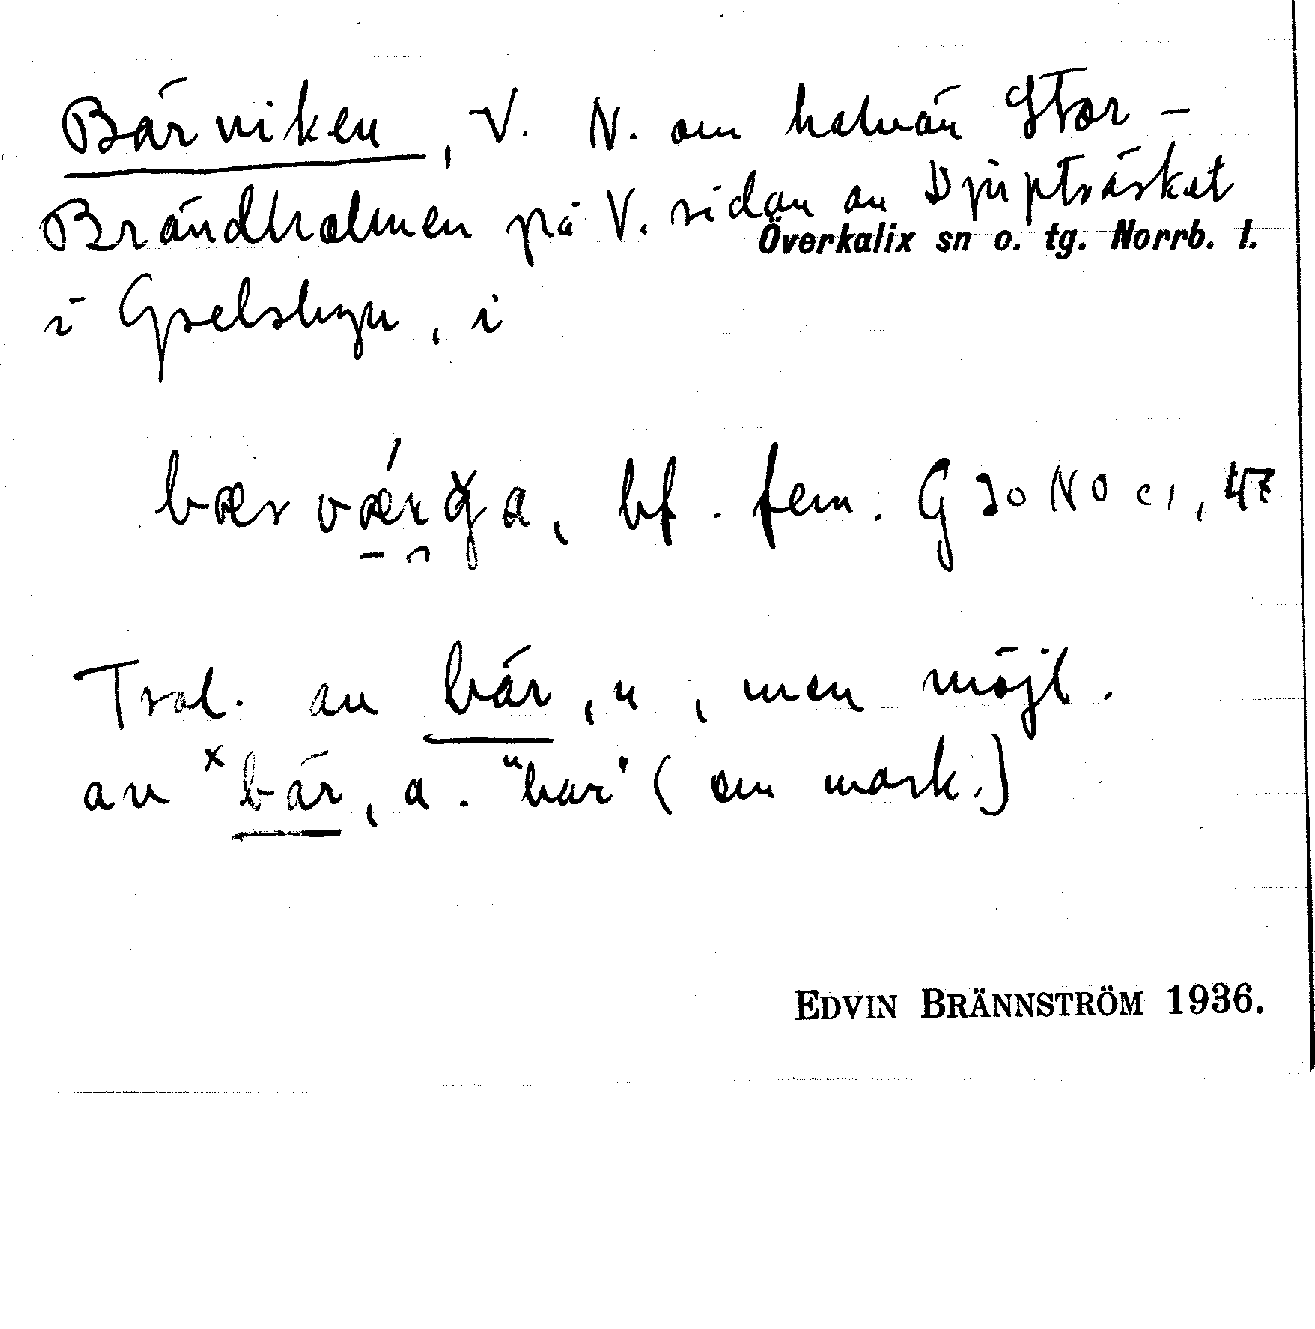 Bärviken, V. N. om halvön Stor-
Brändholmen på V. sidan av Djupträsket
i Gyelsbyn, i Överkalix sn o. tg. Norrb. l.
bærværga, bf. fem. G 30 NO c1, 47
Trol. av bär, n, men möjl.
av ˣbär, a. "bar" (om mark.)
EDVIN BRÄNNSTRÖM 1936.